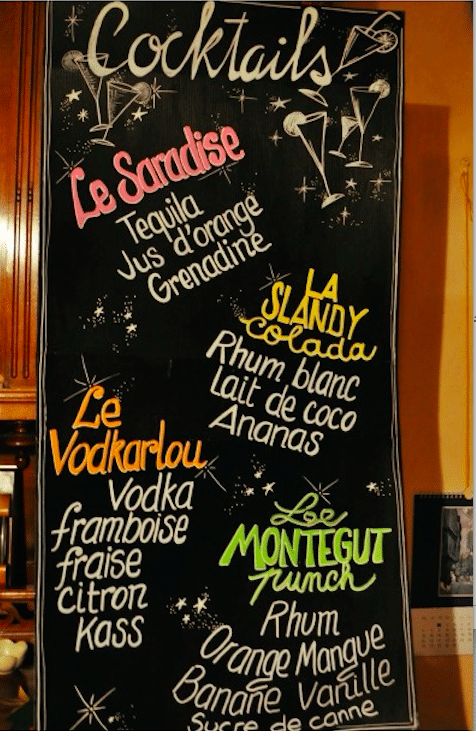 Cocktails
Le Saradise
Tequila
Jus d'orange
Grenadine
LA
SLANDY
colada
Rhum blanc
Lait de coco
Ananas
Le
Vodkarlou
Vodka
framboise
fraise
citron
Kass
Loe
MONTEGUT
punch
Rhum
Orange Mangue
Banane Vanille
Sucre de canne